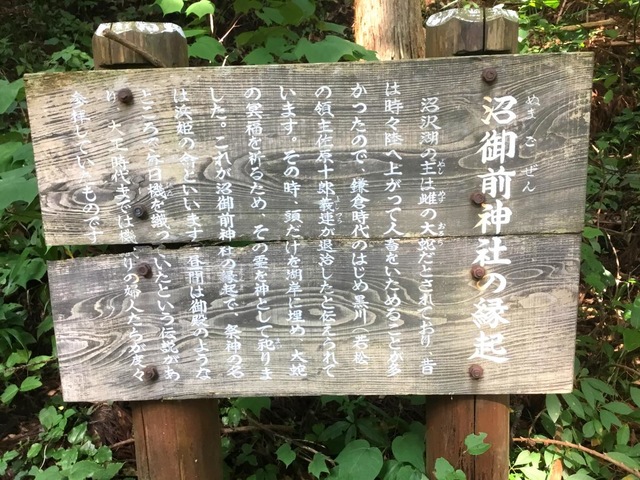 沼御前神社の縁起
ぬまごぜん
沼沢湖の主は雌の大蛇だとされており、昔
めし
は時々陸へ上がって人畜をいためることが多
かったので、鎌倉時代のはじめ黒川（若松）
の領主佐原十郎義連が退治したと伝えられて
います。その時、頭だけを湖岸に埋め、大蛇
の冥福を祈るため、その霊を神として祀りま
した。これが沼御前神社の縁起で、祭神の名
は浜姫の命といいます。昼間は御殿のような
ところで毎日機を織っていたという伝説があ
り、大正時代までは機織りの婦人たちが度々
参拝していたものです